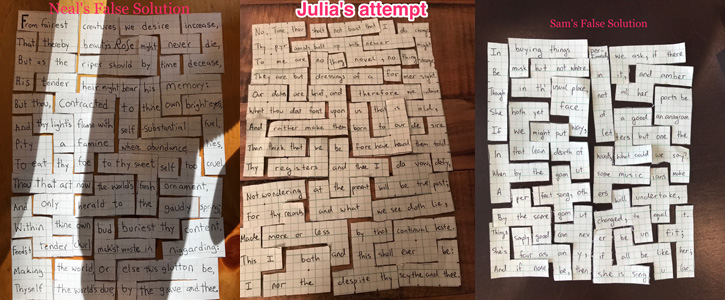 Neal's False Solution
From fairest creatures we desire increase,
That thereby beauty's Rose might never die,
But as the riper should by time decease,
His tender heir might bear his memory:
But thou, contracted to thine own bright eyes,
And thy light's flame with self substantial fuel,
Pity a famine where abundance lies,
To eat thy foe to thy sweet self too cruel
Thou that art now the world's fresh ornament,
And only herald to the gaudy spring
Within thine own bud buriest thy content,
tender churl makest waste in niggarding:
Making the world, or else this glutton be,
Thyself the world's due by the grave and thee.
Julia's attempt
No, Time, thou shalt not boast that I do change
Thy pyr built up with newer
To me are no thing novel, no thing
They are but dressings of a former sight
Our dates are brief, and therefore we admire
What thou dost foist upon us that is old;
And rather make them born to our desire
Than think that we before have heard them told
Thy registers and thee I do defy,
Not wondering at the present will be true past;
For thy records and what we see doth lie,
Made more or less by that continual haste.
This I both and this shall ever be:
I nor the despite thy scythe and thee.
Sam's False Solution
In buying things we ask, if there
Be musk but not where in it, and amber
Though in th' usual place, not all her parts be
She hath yet face of a good an anagram
If we might put letters but one the
In that lean dearth of words, what could we say?
When by the gamut some musicians make
A perfect song, others will undertake,
By the same gamut changed, to equal it.
Things simply good can never be unfit;
She's fair as any, if all be like her,
And if none be, then she is singular.